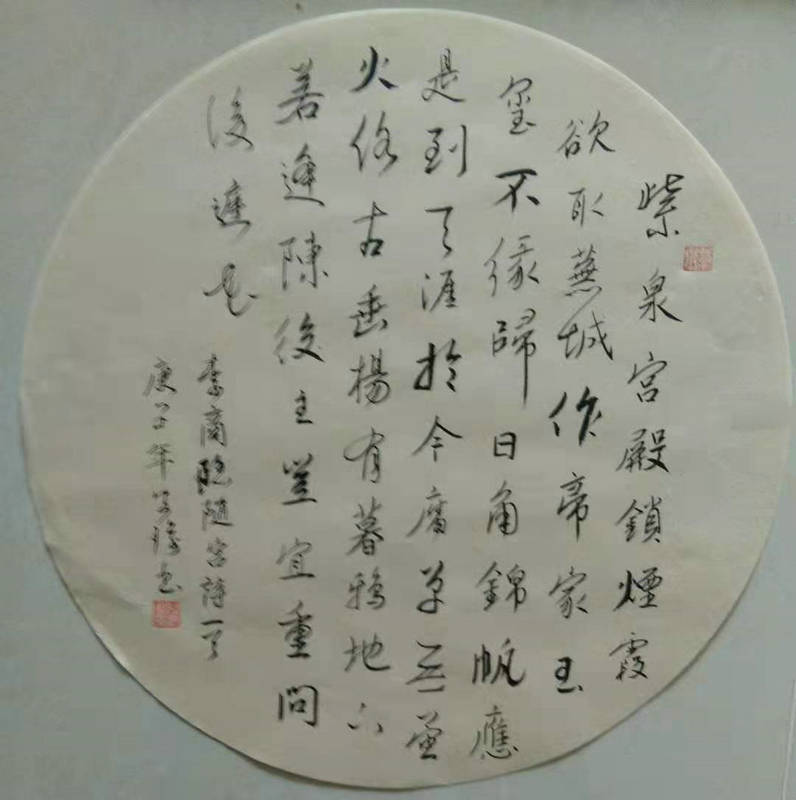 紫泉宮殿鎖煙霞
欲取蕪城作帝家玉
玺不緣歸日角錦帆應
是到天涯於今腐草無螢
火終古垂楊有暮鴉地下
若逢陳後主豈宜重問
後庭花
李商隐随宮詩一首
庚子年書